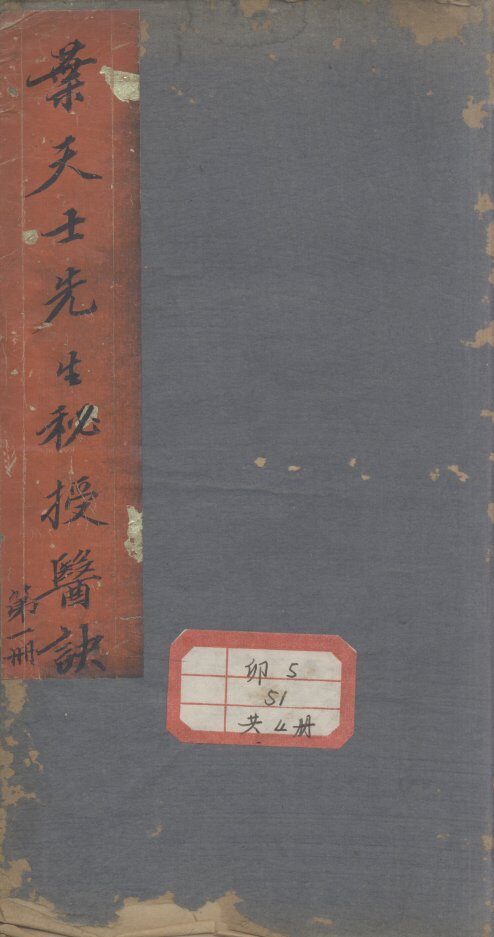 葉天士先生秘授醫訣
第一册
卯 5
51
共4册